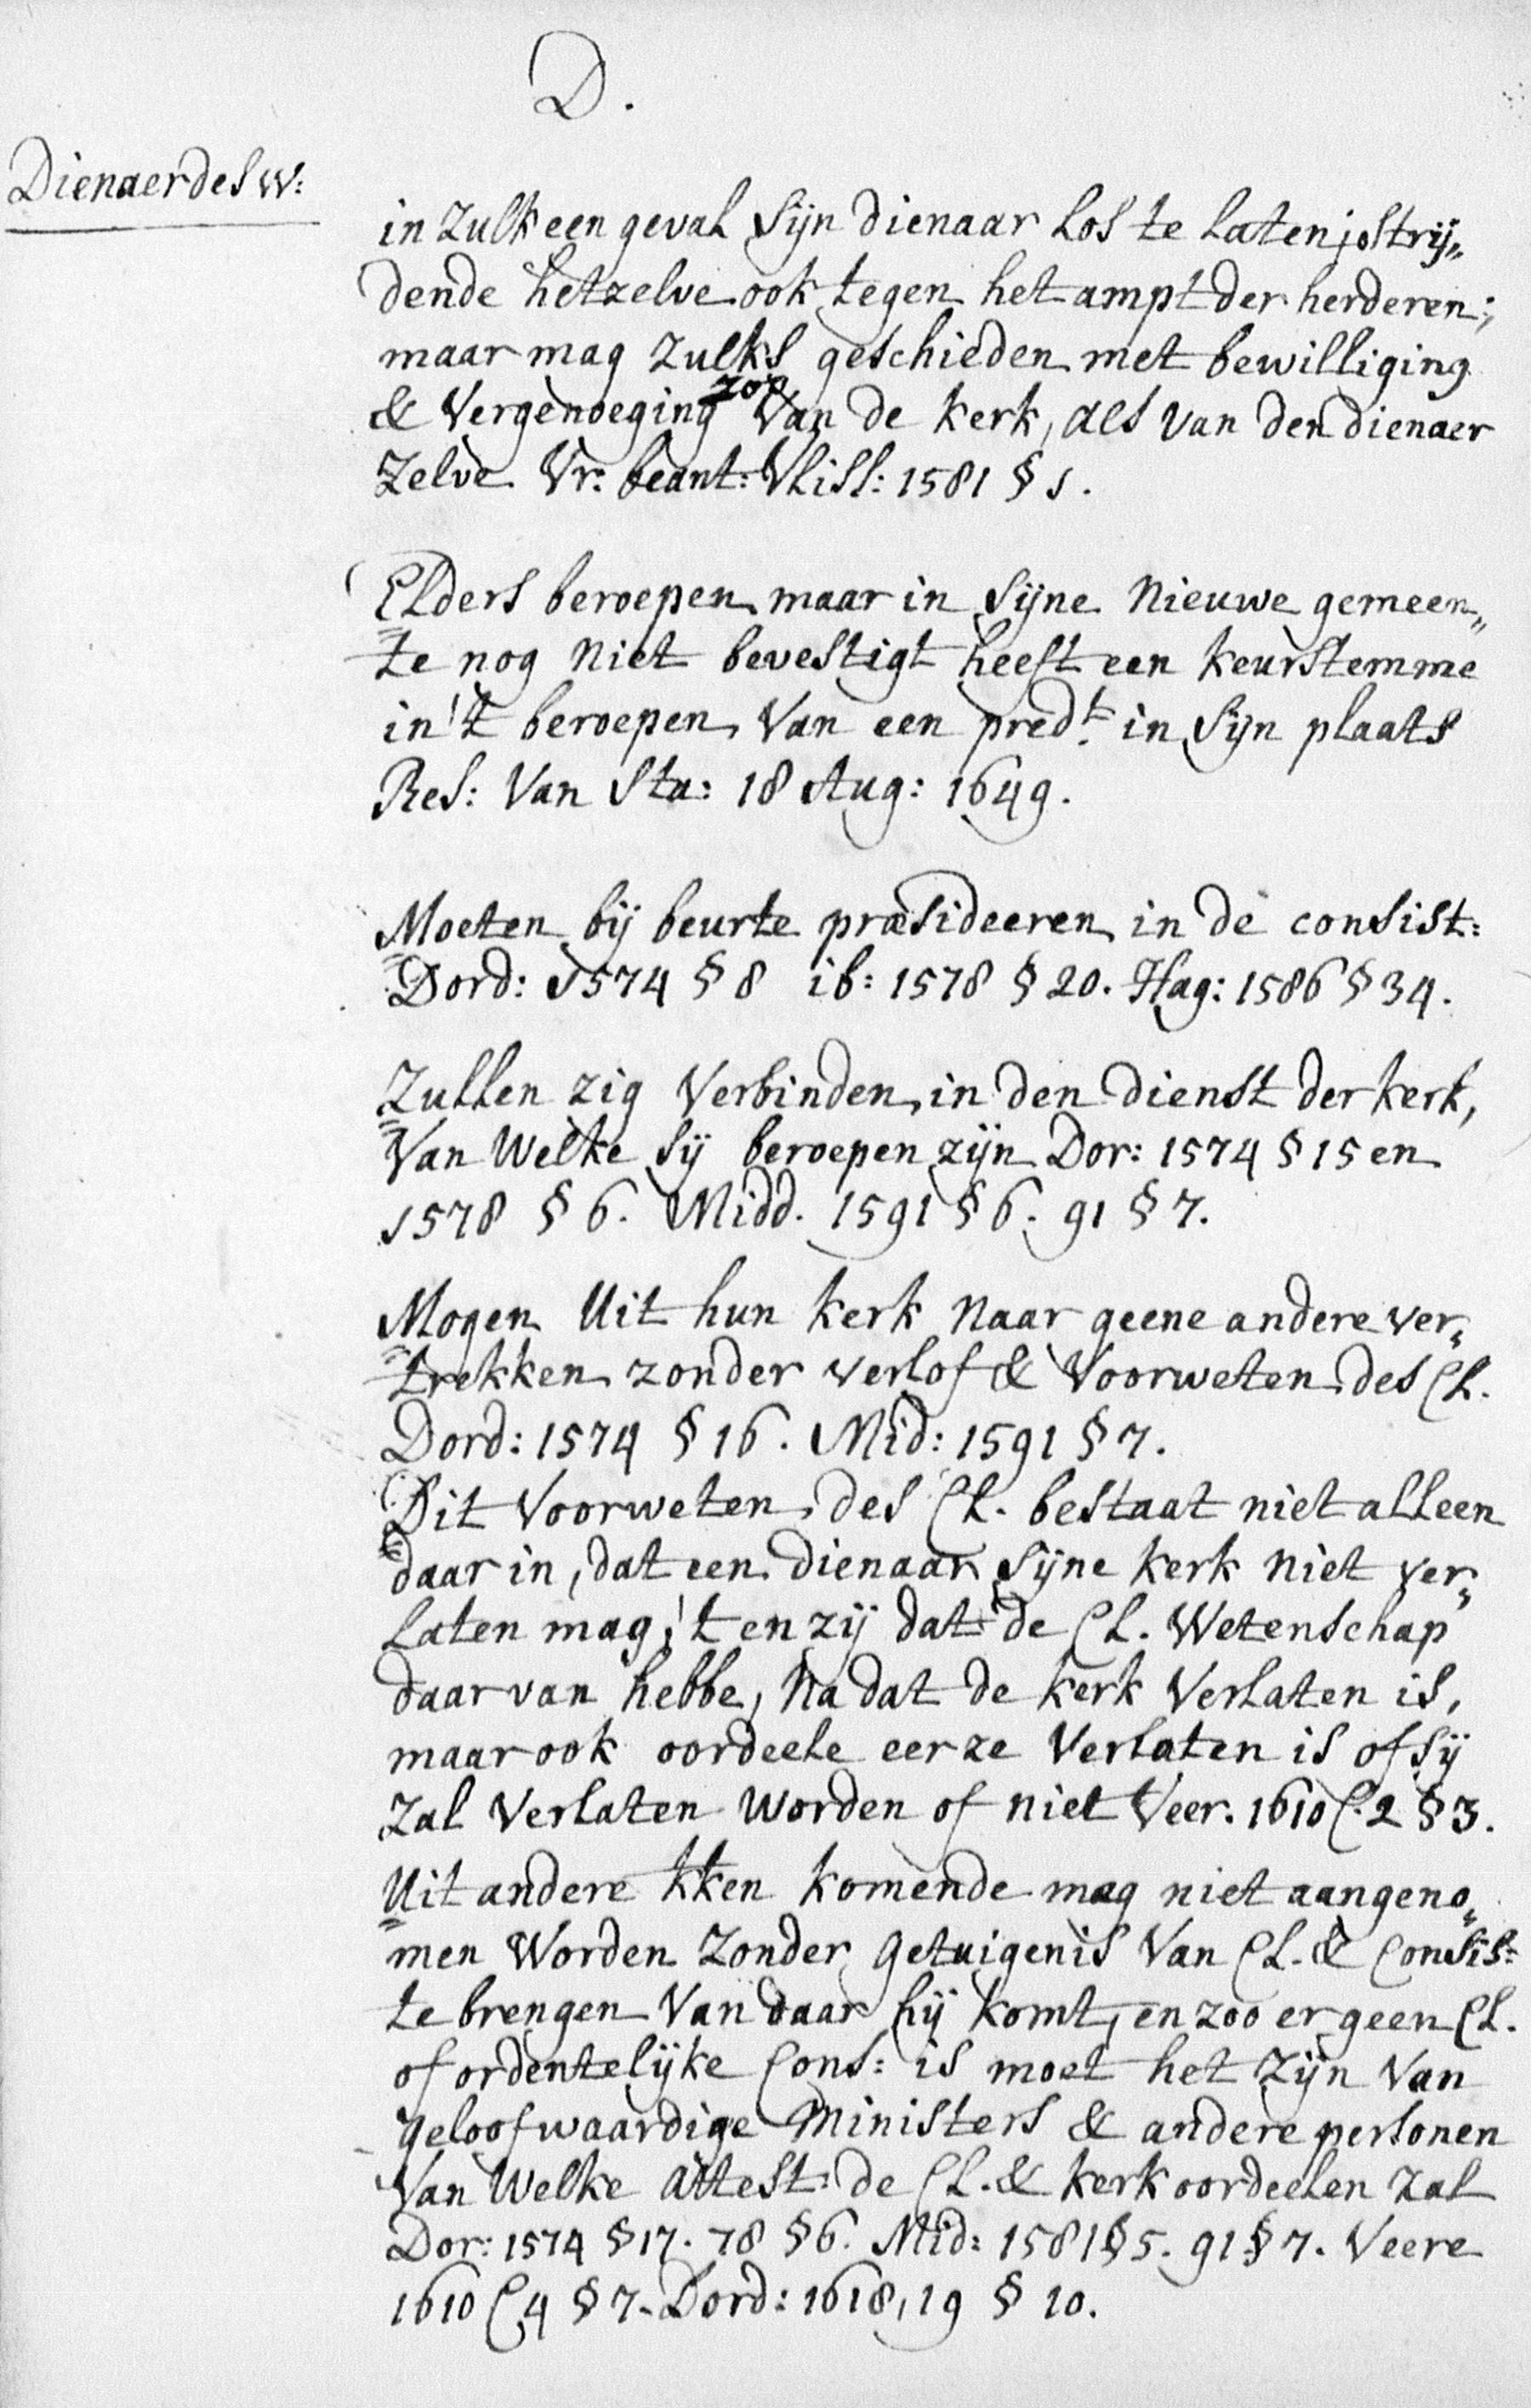 D.
Dienaer des W:
in zulk een geval Sijn dienaar los te laten; strij„
dende hetzelve ook tegen het ampt der herderen;
maar mag zulks geschieden met bewilliging
& Vergenoeging zop Van de kerk, als van den dienaer
Zelve. Vr: beant: Vliss: 1581 § 1.
Elders beroepen maar in Sijne Nieuwe gemeen„
te nog niet bevestigt heeft een keurstemme
in 't beroepen Van een predt in Sijn plaats
Res: Van Sta: 18 Aug: 1649.
Moeten bij beurte præsideeren in de consist:
Dord: 1574 § 8 ib: 1578 § 20. Hag: 1586 § 34.
Zullen zig Verbinden in den dienst der kerk,
Van Welke Sij beroepen zijn Dor: 1574 § 15 en
1578 § 6. Midd. 1591 § 6. 91 § 7.
Mogen Uit hun kerk Naar geene andere ver„
trekken zonder verlof & Voorweten des Cl.
Dord: 1574 § 16. Mid: 1591 § 7.
Dit Voorweten des Cl. bestaat niet alleen
daar in, dat een dienaar Sijne kerk niet ver„
laten mag, 't en zij dat de Cl. Wetenschap
daar van hebbe, Na dat de kerk Verlaten is,
maar ook oordeele eer ze Verlaten is of Sij
Zal Verlaten Worden of niet Veer. 1610 C. 2 § 3.
Uit andere kken komende mag niet aangeno„
men Worden Zonder getuigenis Van Cl. & Consis:
te brengen Van daar hij komt, en zoo er geen Cl.
of ordentelijke Cons: is moet het Zijn Van
geloofwaardige Ministers & andere personen
Van Welke attest: de Cl. & kerk oordeelen Zal
Dor: 1574 § 17. 78 § 6. Mid: 1581 § 5. 91 § 7. Veere
1610 C 4 § 7. Dord: 1618, 19 § 10.